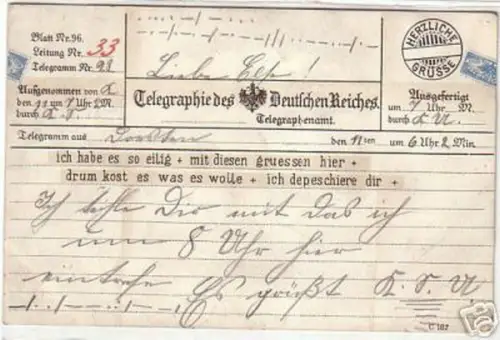 Blatt Nr. 96.
Leitung Nr. 33
Telegramm Nr. 93
Liebe Else!
HERZLICHE GRÜSSE
Aufgenommen von K
den 11 um 7 Uhr 2 M.
durch K. S.
Telegraphie des Deutschen Reiches.
Telegraphenamt.
Ausgefertigt
um 7 Uhr M.
durch K U.
Telegramm aus den 11ten um 6 Uhr 2 Min.
ich habe es so eilig + mit diesen gruessen hier +
drum kost es was es wolle + ich depeschiere dir +
Ich teile Dir mit das ich
um 8 Uhr hier
eintrefe Es grüßt K. S. U.
C 187